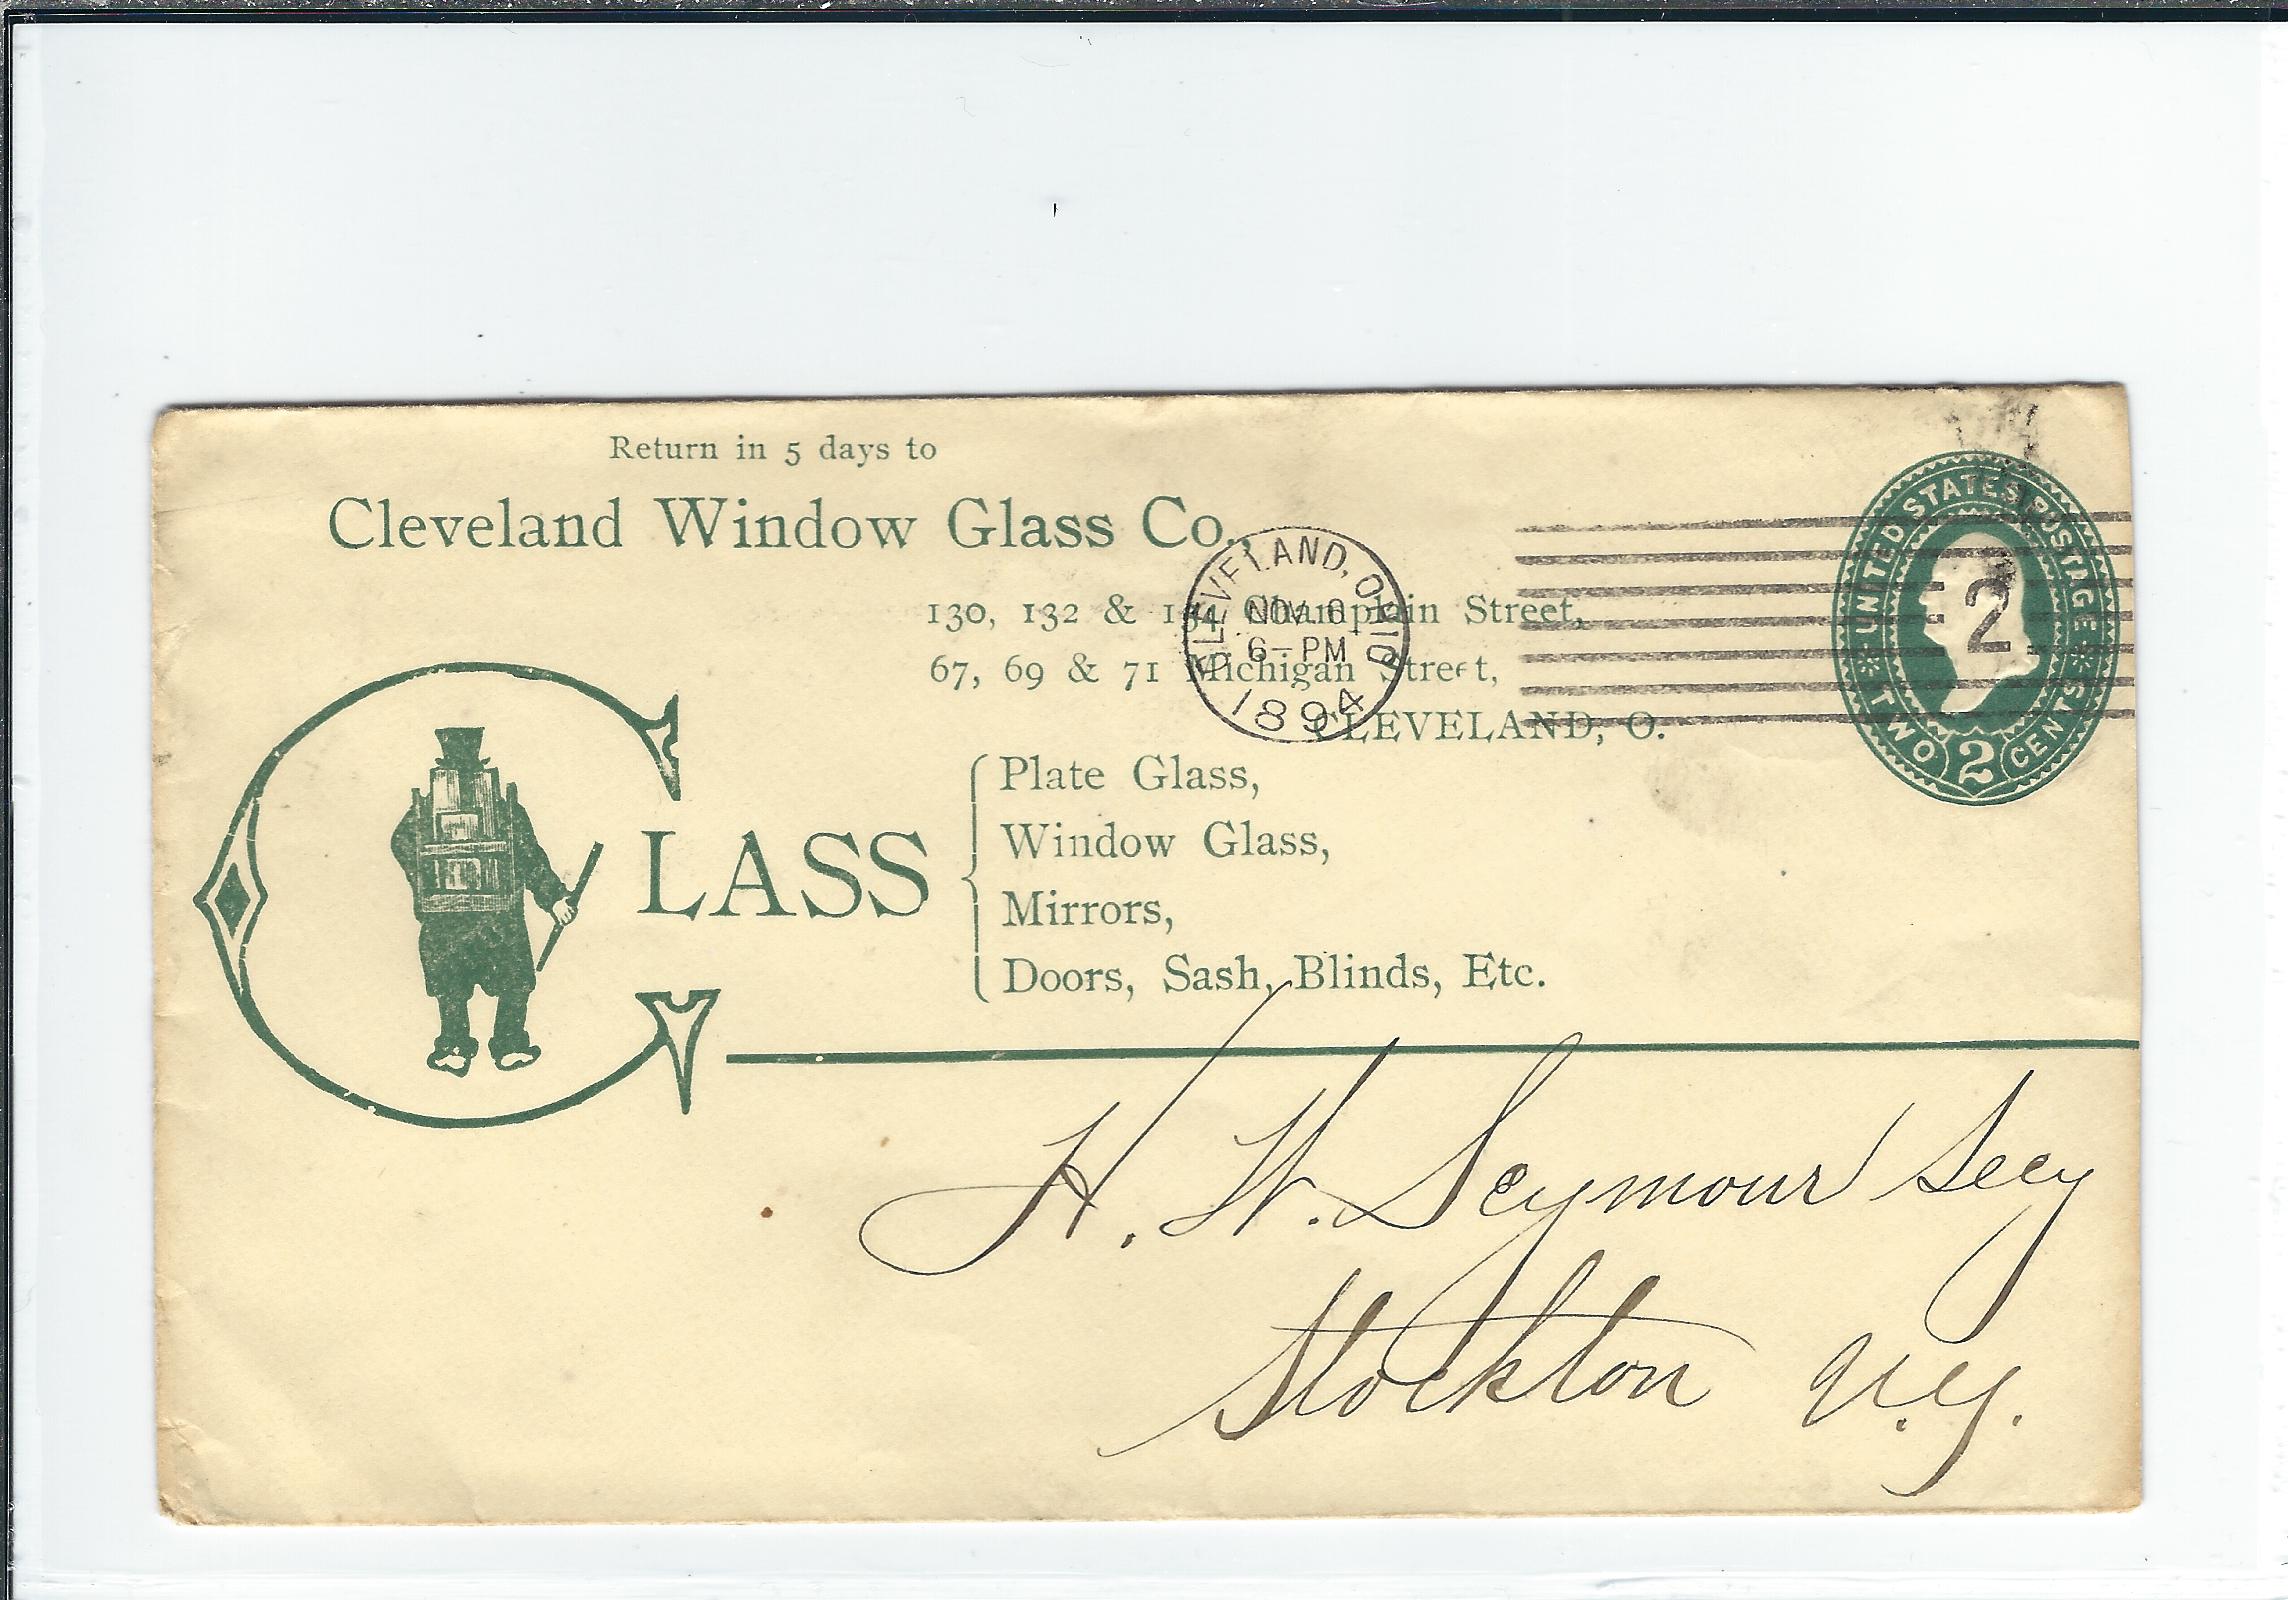 Return in 5 days to
Cleveland Window Glass Co.,
130, 132 & 134 Champlain Street,
67, 69 & 71 Michigan Street,
CLEVELAND, O.
CLEVELAND, OHIO
NOV
6-PM
1894
2
UNITED STATES POSTAGE
TWO 2 CENTS
GLASS
Plate Glass,
Window Glass,
Mirrors,
Doors, Sash, Blinds, Etc.
H. W. Seymour Secy
Stockton N.Y.